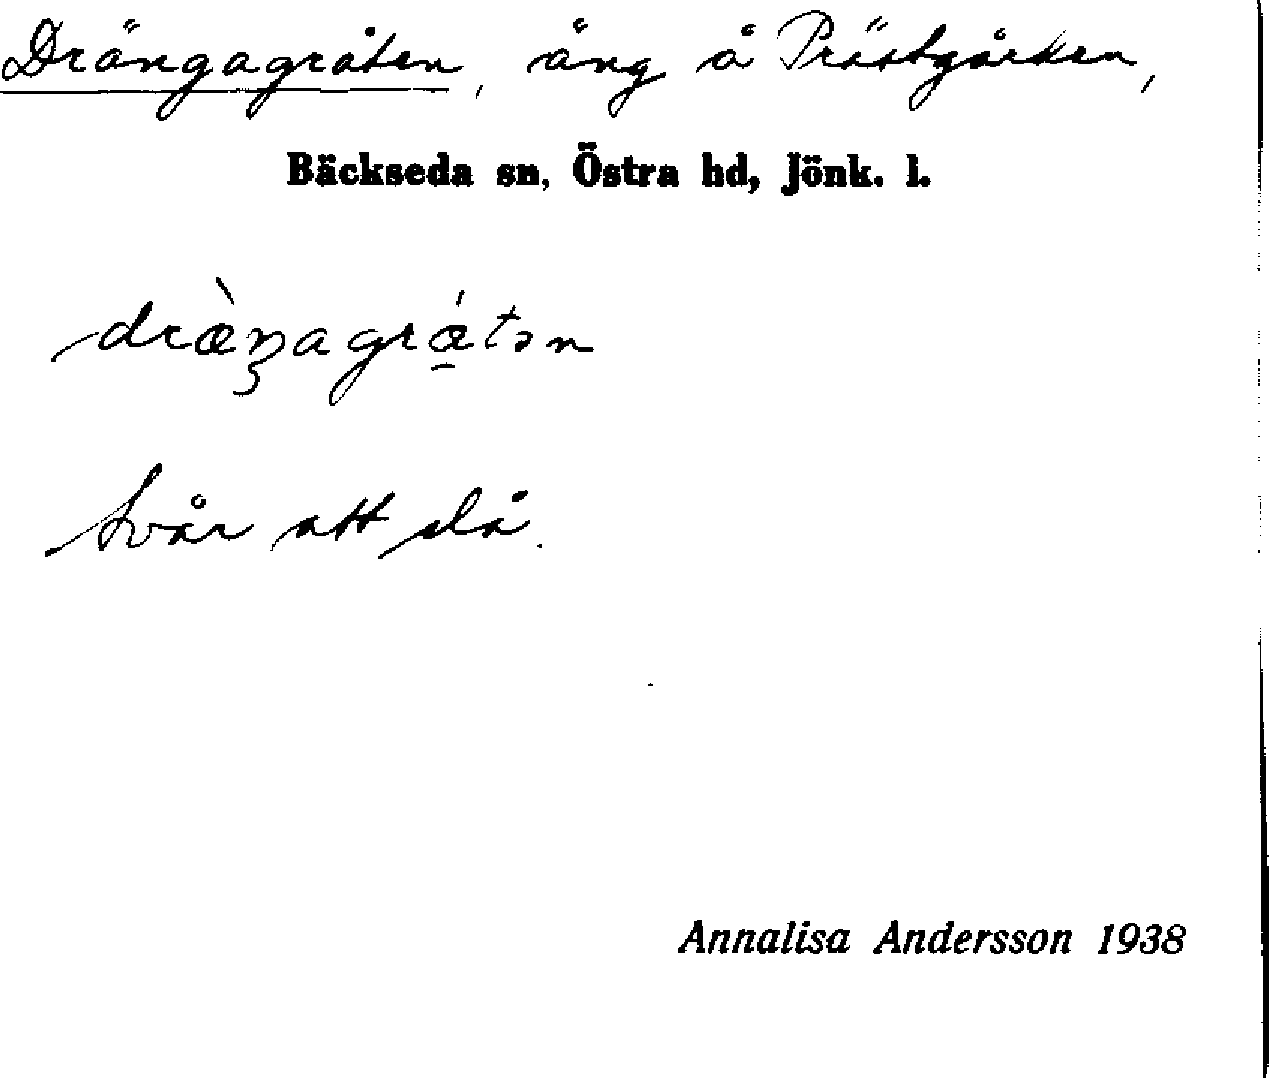 Drängagråten, äng å Prästgården,
Bäckseda sn, Östra hd, Jönk. l.
dræ̀ŋagrá̱tən
Svår att slå.
Annalisa Andersson 1938